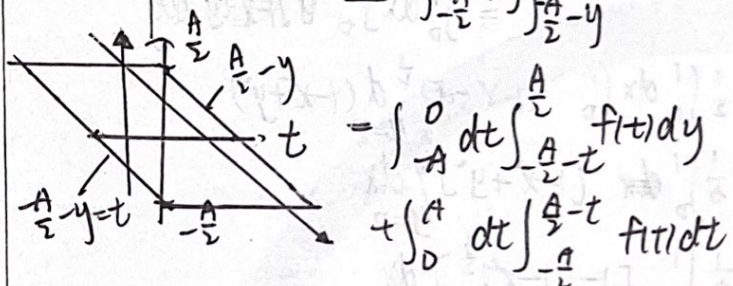 ∫_{-A/2} ∫_{-A/2-y}
A/2
A/2-y
t
-A/2-y=t
-A/2
=∫_{-A}^{0} dt∫_{-A/2-t}^{A/2} f(t)dy
+∫_{0}^{A} dt∫_{-A/2}^{A/2-t} f(t)dt